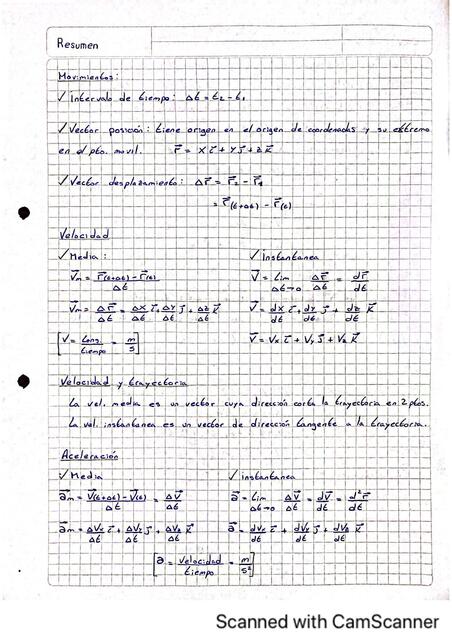 Resumen
Movimientos:
✓ Intervalo de tiempo: Δt = t₂ - t₁
✓ Vector posición: tiene origen en el origen de coordenadas y su extremo
en el pto. movil. r⃗ = x i⃗ + y j⃗ + z k⃗
✓ Vector desplazamiento: Δr⃗ = r⃗₂ - r⃗₁
= r⃗(t+Δt) - r⃗(t)
Velocidad
✓ Media:
V⃗m = r⃗(t+Δt) - r⃗(t) / Δt
V⃗m = Δr⃗/Δt = Δx/Δt i⃗ + Δy/Δt j⃗ + Δz/Δt k⃗
[V = Long./tiempo = m/s]
✓ Instantanea
V⃗ = Lim Δt→0 Δr⃗/Δt = dr⃗/dt
V⃗ = dx/dt i⃗ + dy/dt j⃗ + dz/dt k⃗
V⃗ = Vx i⃗ + Vy j⃗ + Vz k⃗
Velocidad y trayectoria
La vel. media es un vector cuya dirección corta la trayectoria en 2 ptos.
La vel. instantanea es un vector de dirección tangente a la trayectoria.
Aceleración
✓ Media
a⃗m = V⃗(t+Δt) - V⃗(t) / Δt = ΔV⃗/Δt
a⃗m = ΔVx/Δt i⃗ + ΔVy/Δt j⃗ + ΔVz/Δt k⃗
✓ instantanea
a⃗ = Lim Δt→0 ΔV⃗/Δt = dV⃗/dt = d²r⃗/dt
a⃗ = dVx/dt i⃗ + dVy/dt j⃗ + dVz/dt k⃗
[a = velocidad/tiempo = m/s²]
Scanned with CamScanner